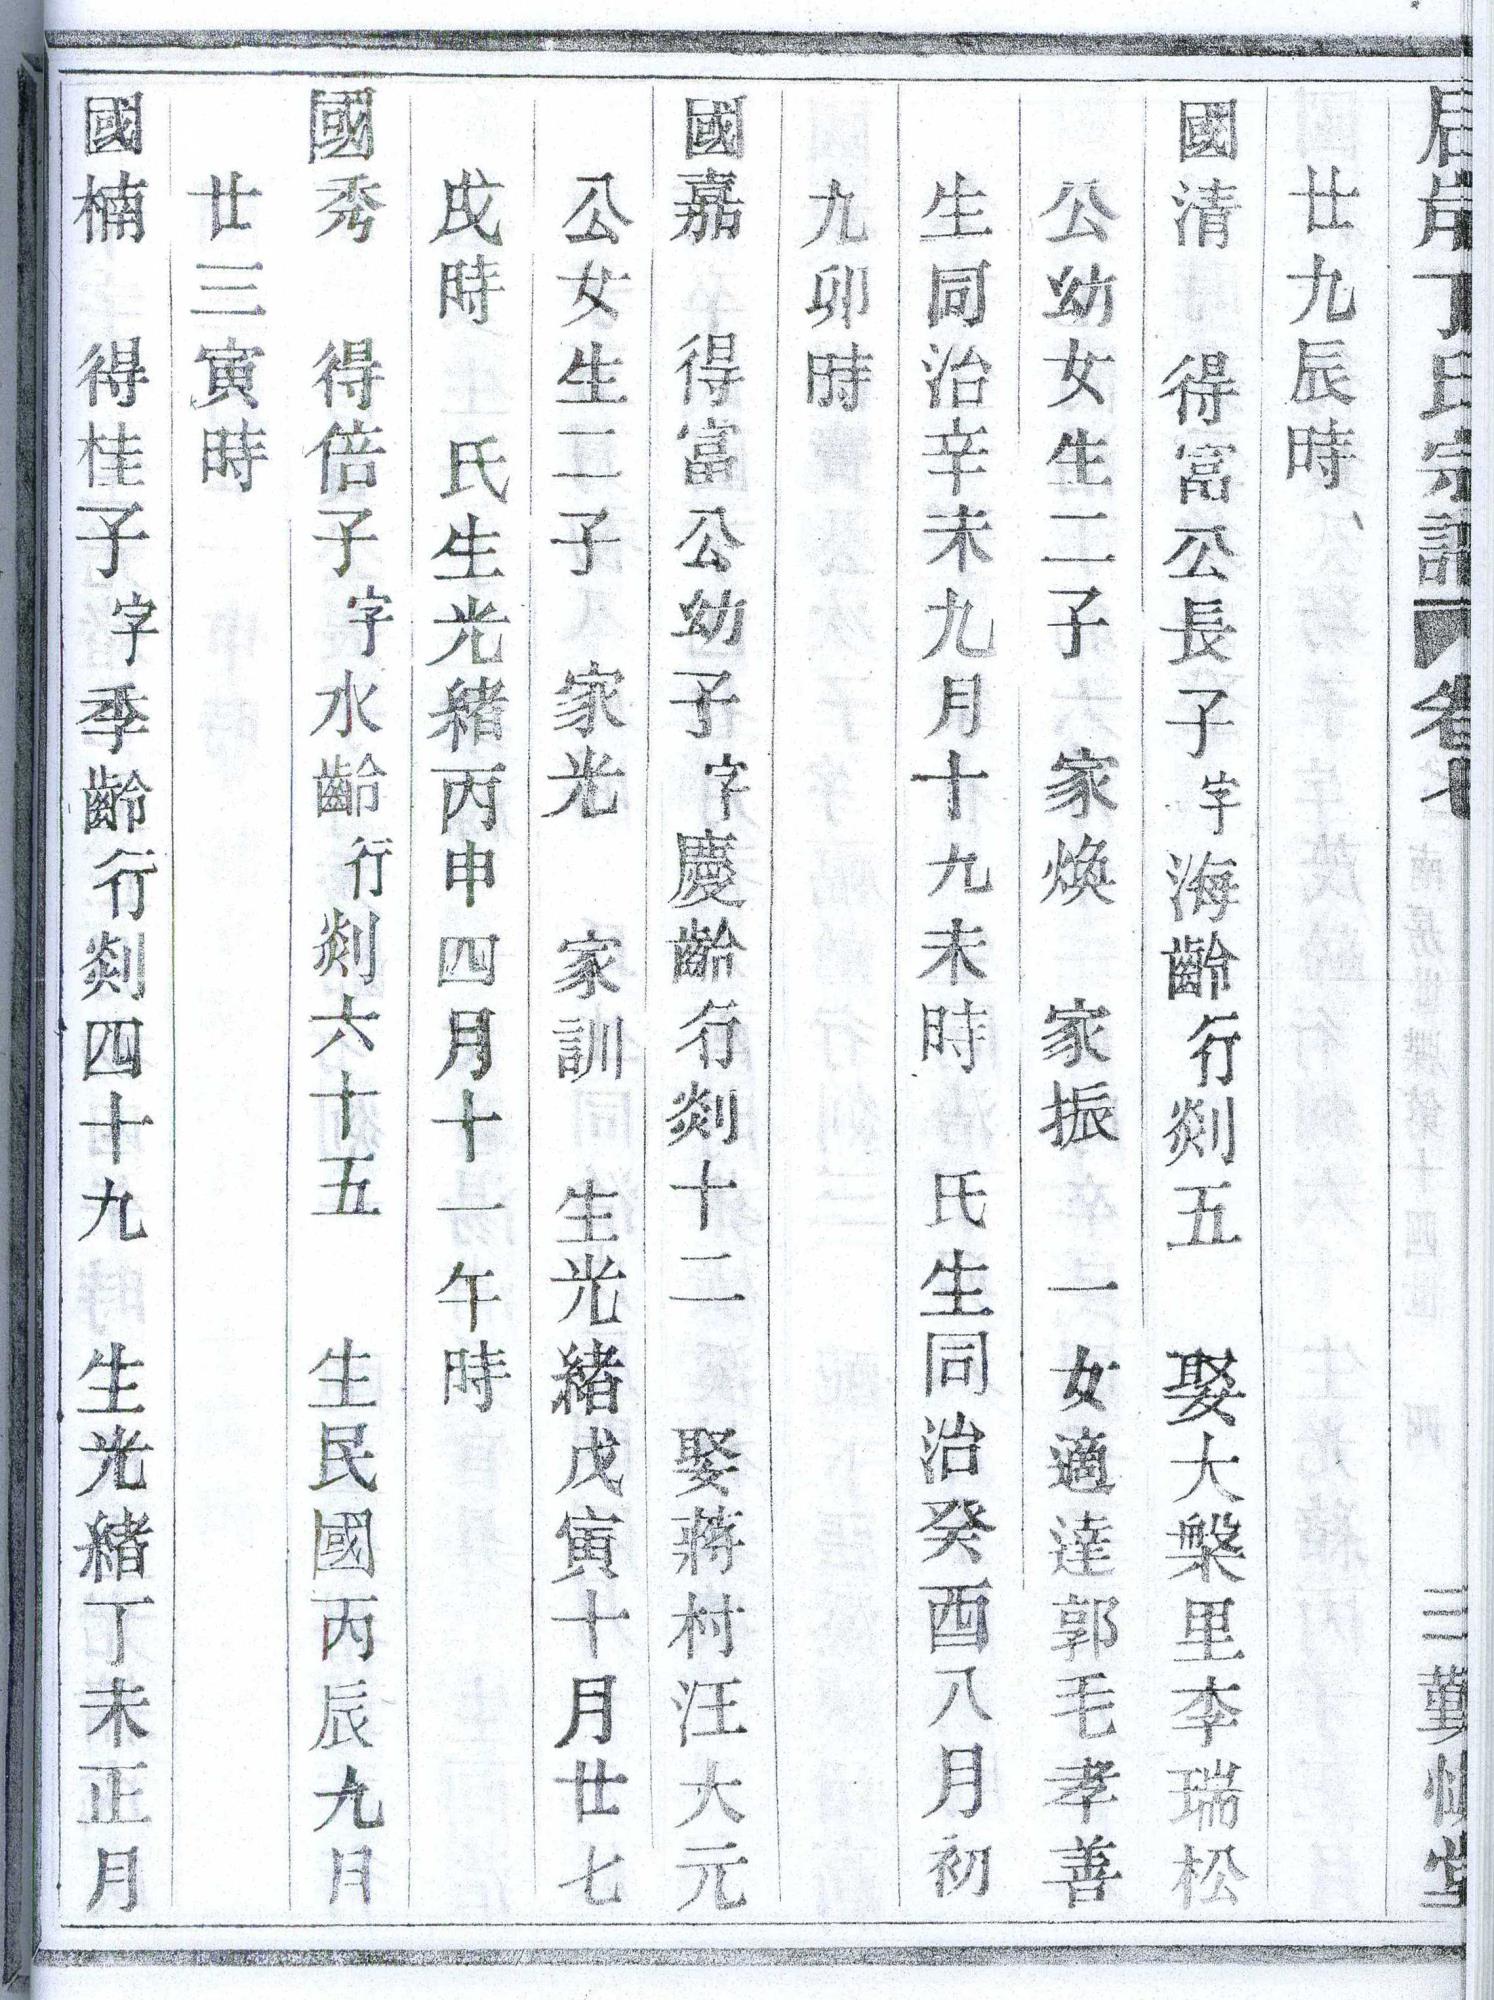 丁氏宗譜 卷七 三 勤慎堂
廿九辰時
國清 得富公長子字海齡行剡五 娶大槃里李瑞松
公幼女生二子 家煥 家振 一女適達郭毛孝善
生同治辛未九月十九未時 氏生同治癸酉八月初
九卯時
國嘉 得富公幼子字慶齡行剡十二 娶蔣村汪大元
公女生二子 家光 家訓 生光緒戊寅十月廿七
戌時 氏生光緒丙申四月十一午時
國秀 得倍子字水齡行剡六十五 生民國丙辰九月
廿三寅時
國楠 得桂子字季齡行剡四十九 生光緒丁未正月